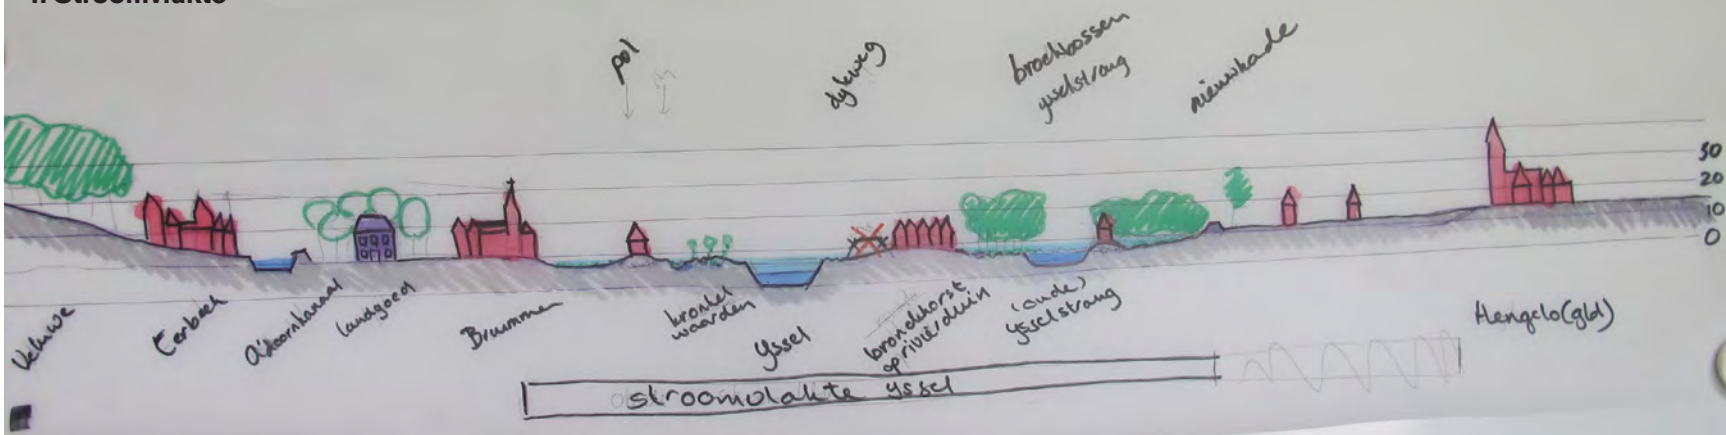 pol
dykweg
brockbossen
ysselstrang
nieuwkade
30
20
10
0
Veluwe
Eerbeek
landgoed
Brummen
kronkel
waarden
yssel
bronckhorst
op rivierduin
(oude)
ysselstrang
Hengelo (gld)
stroomvlakte yssel